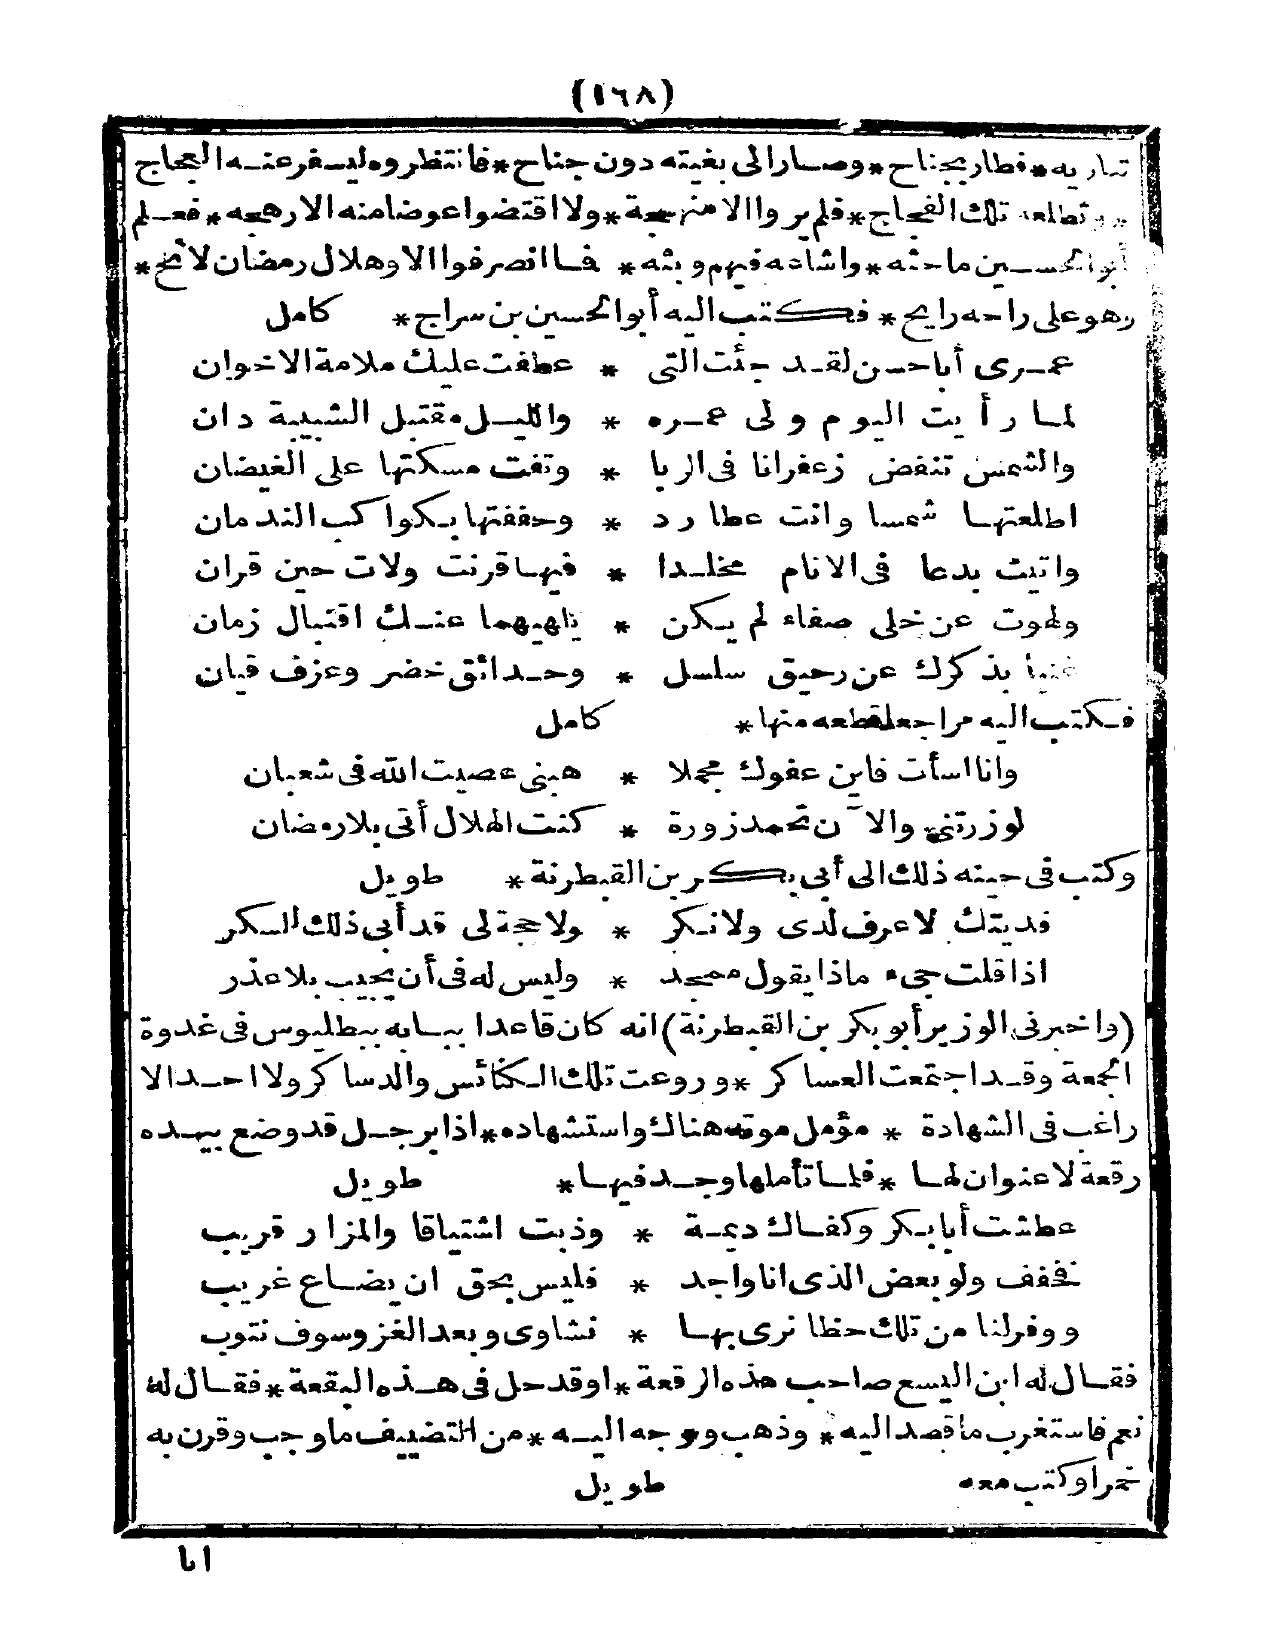 (١٦٨)
تباريه * فطار بجناح * وصار الى بغيته دون جناح * فانتظروه ليسفر عنه العجاج
وتطلعه تلك الفجاج * فلم يروا الا منهجة * ولا اقتضوا عوضا منه الا رهجه * فعلم
أبو الحسين ما حثه * واشاعه فيهم وبثه * فما انصرفوا الا وهلال رمضان لائح *
وهو على راحه رايح * فكتب اليه أبو الحسين بن سراج * كامل
عمرى أبا حسن لقد جئت التى * عطفت عليك ملامة الاخوان
لما رأيت اليوم ولى عمره * والليل مقتبل الشبيبة دان
والشمس تنفض زعفرانا فى الربا * وتفت مسكتها على الغيضان
اطلعتها شمسا وانت عطارد * وحففتها بكواكب الندمان
واتيت بدعا فى الانام مخلدا * فيها قرنت ولات حين قران
ولهوت عن خلى صفاء لم يكن * يلهيهما عنك اقتبال زمان
غنيا بذكرك عن رحيق سلسل * وحدائق خضر وعزف قيان
فكتب اليه مراجعا بقطعه منها * كامل
وانا اسأت فاين عفوك مجملا * هبنى عصيت الله فى شعبان
لو زرتنى والآن تحمد زورة * كنت الهلال أتى بلا رمضان
وكتب فى حينه ذلك الى أبى بكر بن القبطرنة * طويل
فديتك لا عرف لدى ولا نكر * ولا حجة لى قد أبى ذلك السكر
اذا قلت جىء ماذا يقول محمد * وليس له فى أن يجيب بلا عذر
(واخبرنى الوزير أبو بكر بن القبطرنة) انه كان قاعدا ببابه ببطليوس فى غدوة
الجمعة وقد اجتمعت العساكر * وروعت تلك الكنائس والدساكر ولا احد الا
راغب فى الشهادة * مؤمل موته هناك واستشهاده * اذا برجل قد وضع بيده
رقعة لا عنوان لها * فلما تأملها وجد فيها * طويل
عطشت أبا بكر وكفاك ديمة * وذبت اشتياقا والمزار قريب
فخفف ولو بعض الذى انا واجد * فليس بحق ان يضاع غريب
ووفر لنا من تلك حظا نرى بها * نشاوى وبعد الغزو سوف نتوب
فقال له ابن اليسع صاحب هذه الرقعة * اوقد حل فى هذه البقعة * فقال له
نعم فاستغرب ما قصد اليه * وذهب ووجه اليه * من التضييف ما وجب وقرن به
خمرا وكتب معه طويل
ابا